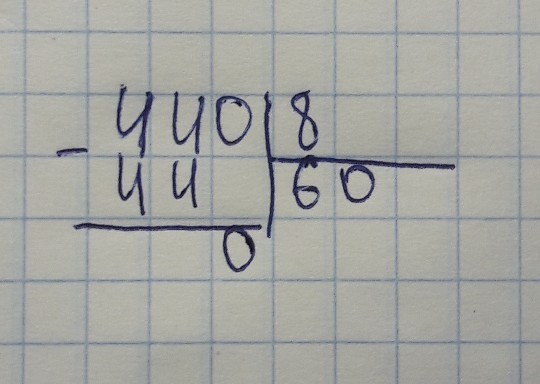 440 8
- 44 60
0